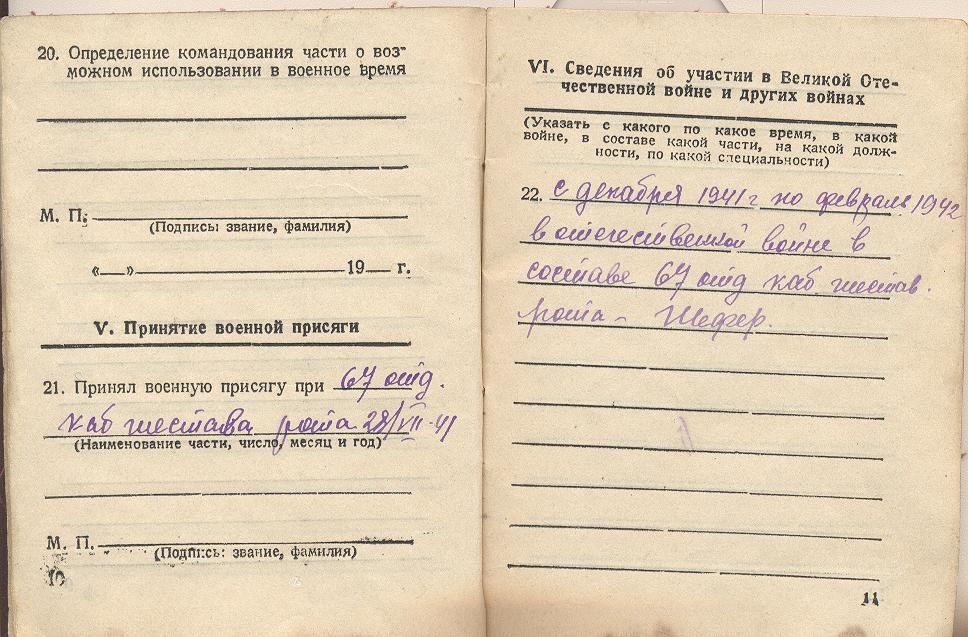 20. Определение командования части о воз-
можном использовании в военное время
М. П.
(Подпись: звание, фамилия)
«__» 19__ г.
V. Принятие военной присяги
21. Принял военную присягу при 67 отд.
каб шестава рота 28/VII-41
(Наименование части, число, месяц и год)
М. П.
(Подпись: звание, фамилия)
10
VI. Сведения об участии в Великой Оте-
чественной войне и других войнах
(Указать с какого по какое время, в какой
войне, в составе какой части, на какой долж-
ности, по какой специальности)
22. с декабря 1941 г по февраль 1942
в отечественной войне в
составе 67 отд каб. шестав.
рота - Шофер.
11